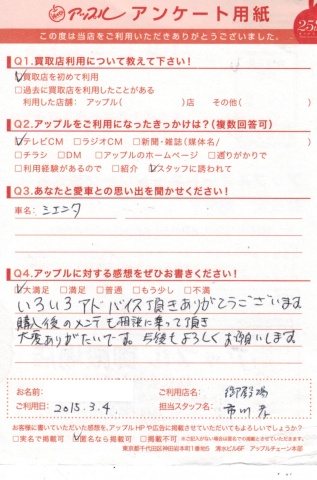 アップル アンケート用紙
この度は当店をご利用いただきありがとうございました。
Q1.買取店利用について教えて下さい!
☑買取店を初めて利用
□過去に買取店を利用したことがある
利用した店舗: アップル( )店 その他( )
Q2.アップルをご利用になったきっかけは?(複数回答可)
☑テレビCM □ラジオCM □新聞・雑誌(媒体名/ )
□チラシ □DM □アップルのホームページ □通りがかりで
□利用経験があるので □紹介 ☑スタッフに誘われて
Q3.あなたと愛車との思い出を聞かせください!
車名: シエンタ
Q4.アップルに対する感想をぜひお書きください!
☑大満足 □満足 □普通 □もう少し □不満
いろいろアドバイス頂きありがとうございます
購入後のメンテも相談に乗って頂き
大変ありがたいです。今後もよろしくお願いします
お名前: ご利用店名: 御殿場
ご利用日: 2015.3.4. 担当スタッフ名: 市川
お客様に書いていただいた感想を、アップルHPや広告に掲載させていただいてもよろしいでしょうか?
□実名で掲載可 ☑匿名なら掲載可 □掲載不可 ※ご記入がない場合は匿名での掲載とさせていただきます。
東京都千代田区神田岩本町1番地5 清水ビル6F アップルチェーン本部